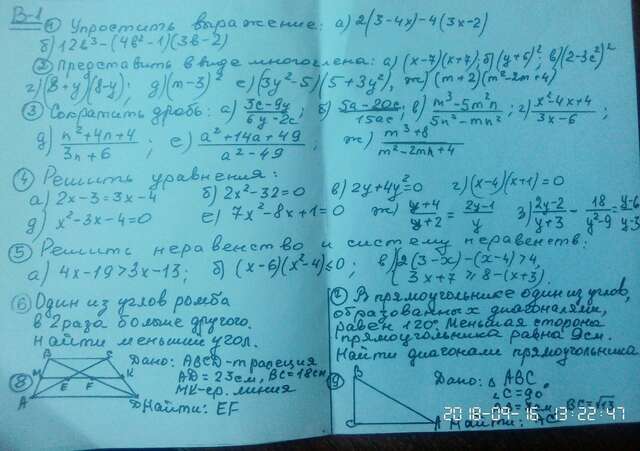 В-1
① Упростить выражение: а) 2(3-4x)-4(3x-2)
б) 12b³-(4b²-1)(3b-2)
② Представить в виде многочлена: а) (x-7)(x+7); б) (y+5)²; в) (2-3c)²
г) (8+y)(8-y); д) (n-3)² е) (3y²-5)(5+3y²), ж) (m+2)(m²-2m+4)
③ Сократить дробь: а) (3c-9y)/(6y-2c); б) (5a-20c)/(15ac); в) (m³-5m²n)/(5n²-mn²); г) (x²-4x+4)/(3x-6);
д) (n²+4n+4)/(3n+6); е) (a²+14a+49)/(a²-49) ж) (m³+8)/(m²-2mn+4)
④ Решить уравнения:
а) 2x-3=3x-4 б) 2x²-32=0 в) 2y+4y²=0 г) (x-4)(x+1)=0
д) x²-3x-4=0 е) 7x²-8x+1=0 ж) (y+4)/(y+2) = (2y-1)/y з) (2y-2)/(y+3) - 18/(y²-9) = (y-6)/(y-3)
⑤ Решить неравенство и систему неравенств:
а) 4x-19>3x-13; б) (x-6)(x²-4)≤0; в) {2(3-x)-(x-4)>4,
3x+7≥8-(x+3).
⑥ Один из углов ромба
в 2 раза больше другого.
Найти меньший угол.
⑦ В прямоугольнике один из углов,
образованных диагоналями,
равен 120°. Меньшая сторона
прямоугольника равна 9см.
Найти диагонали прямоугольника
⑧ Дано: ABCD-трапеция
AD=23см, BC=18см
MK-ср. линия
Найти: EF
M K E F A D
⑨ Дано: △ABC
∠C=90°
BC=√13
Найти: AC
B A
2018-09-16 13:22:47